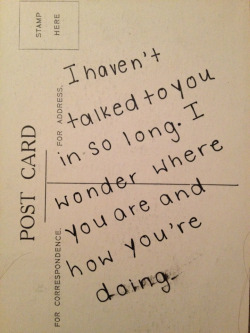 STAMP
HERE
POST CARD
FOR ADDRESS.
FOR CORRESPONDENCE.
I haven't
talked to you
in so long. I
wonder where
you are and
how you're
doing.